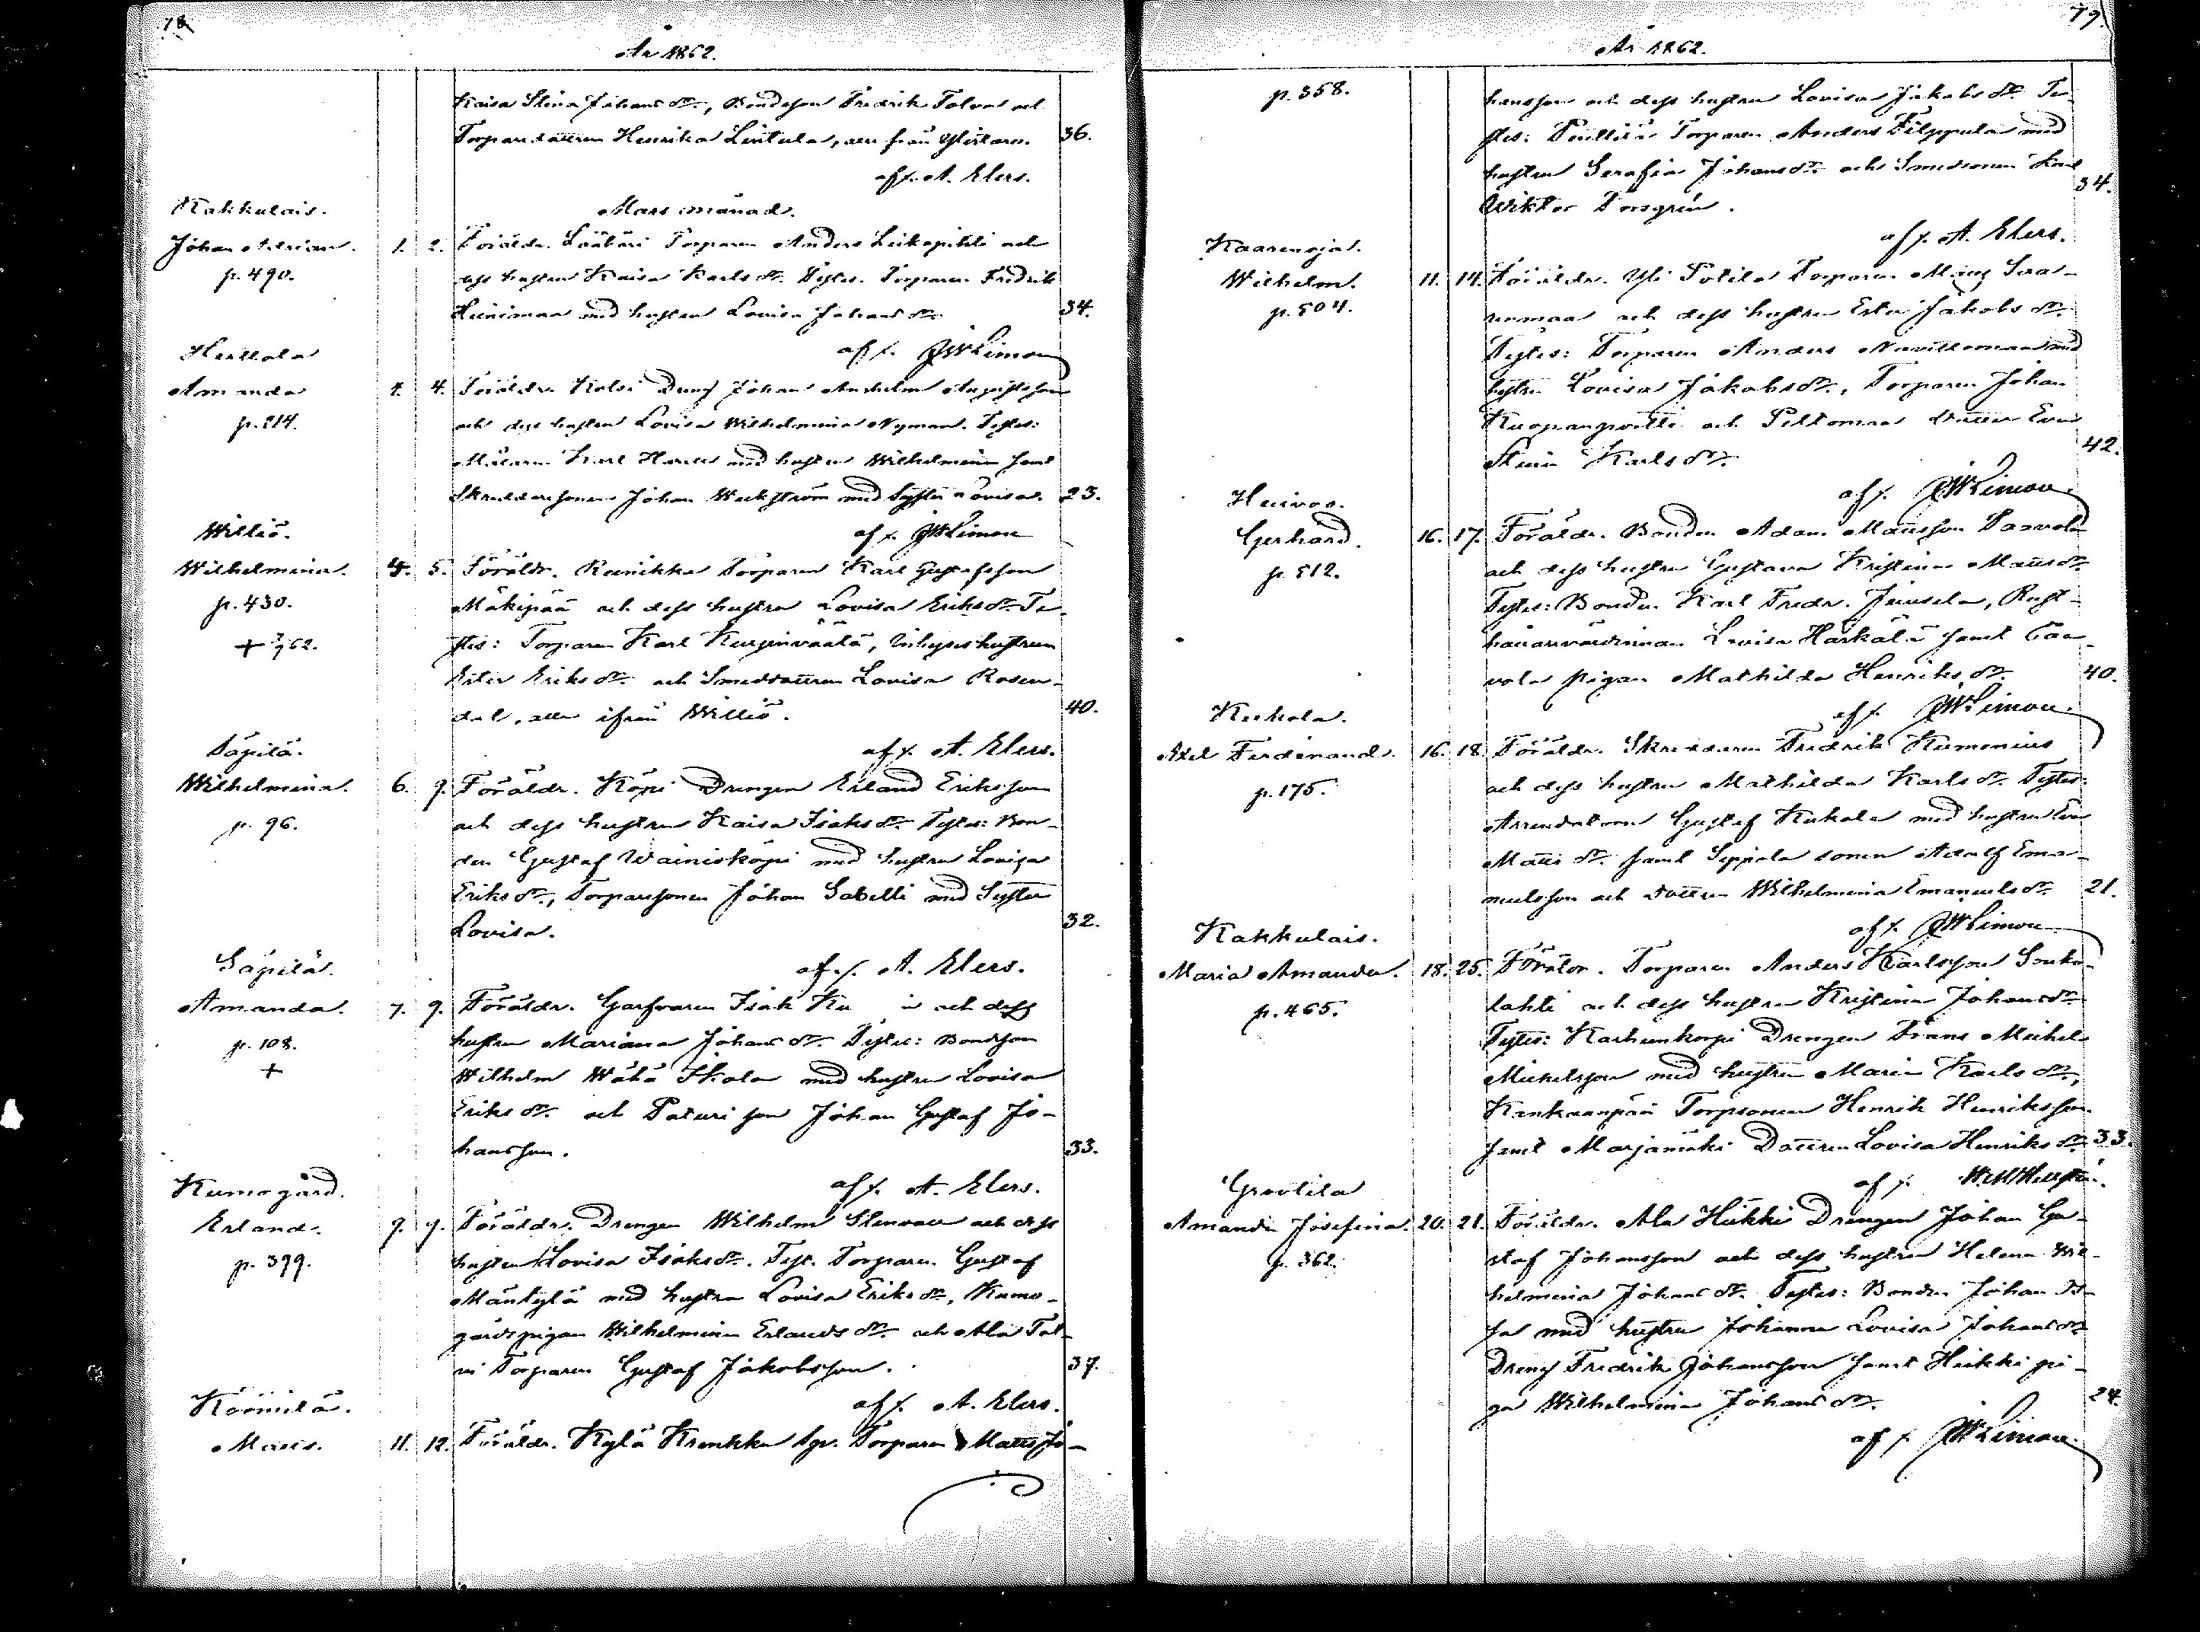 78.
År 1862.
Kaisa Stina Johans dr., Bondeson Fredrik Tolvas och
Torparedattren Henrika Lintula, alla från Ylistaro.
36.
af f. A. Elers.
Kakkulais.
Mars månad.
Johan Adrian.
1. 2. Föräldr. Torparen Anders Leikopihti och
p. 490.
dess hustru Kaisa Karls dr. Testes. Torparen Fredrik
Heinimaa med hustru Lovisa Johans dr.
34.
af f. JW Limon
Hertola
Amanda
4. 4. Föräldr. Kolsi Dreng Johan Anshelm Augustsson
p. 214.
och dess hustru Lovisa Wilhelmina Nyman. Testes:
Målaren Karl med hustru Wilhelmina samt
Skräddaresonen Johan Weckström med Syster Lovisa.
23.
af f. JW Limon
Williö.
Wilhelmina.
4. 5. Föräldr. Reinikka Torparen Karl Gustafsson
p. 430.
Mäkipää och dess hustru Lovisa Eriks dr. Te-
+ 62.
stes: Torparen Karl Kurjenväätä, Inhyseshustrun
Ester Eriks dr. och Smedsdattren Lovisa Rosen-
dal, alla ifrån Williö.
40.
af f. A. Elers.
Säpilä.
Wilhelmina.
6. 9. Föräldr. Köpi Drengen Erland Eriksson
p. 96.
och dess hustru Kaisa Isaks dr. Testes: Bon-
den Gustaf Wainisköpi med hustru Lovisa
Eriks dr., Torparesonen Johan Sabelli med Syster
Lovisa.
32.
af f. A. Elers.
Säpilä.
Amanda.
7. 9. Föräldr. Garfvaren Isak och dess
p. 108.
hustru Mariana Johans dr. Testes: Bondeson
+
Wilhelm Wähä Skola med hustru Lovisa
Eriks dr. och Paturi son Johan Gustaf Jo-
hansson.
33.
af f. A. Elers.
Kumogård.
Erland.
9. 9. Föräldr. Drengen Wilhelm Stenvall och dess
p. 399.
hustru Lovisa Isaks dr. Test. Torparen Gustaf
Mäntylä med hustru Lovisa Eriks dr., Kumo-
gårdspigan Wilhelmina Erlands dr. och Ala Tal-
vi Torparen Gustaf Jakobsson.
37.
af f. A. Elers.
Köömilä.
Matts.
11. 12. Föräldr. Kylä Krenkka Torparen Matts Jo-
79.
År 1862.
p. 358.
hansson och dess hustru Lovisa Jakobs dr. Te-
stes: Penttilä Torparen Anders Filppula med
hustru Serafia Johans dr. och Smedsonen Karl
34.
Wiktor Forsgrén.
af f. A. Elers.
Kaarenoja.
Wilhelm.
11. 14. Föräldr. Yli Potila Torparen Måns Saa-
p. 504.
renmaa och dess hustru Ester Jakobs dr.
Testes: Torparen Anders med
hustru Lovisa Jakobs dr., Torparen Johan
och Peltomaa dattren Eva
42.
Stina Karls dr.
af f. JW Limon
Heivos.
Gerhard.
16. 17. Föräldr. Bonden Adam Mattsson Paavola
p. 512.
och dess hustru Gustava Kristina Matts dr.
Testes: Bonden Karl Fredr. Junsela, Rust-
hållarvärdinnan Lovisa Härkälä samt Paa-
vola pigan Mathilda Henriks dr.
40.
af f. JW Limon
Kukola.
Axel Ferdinand.
16. 18. Föräldr. Skreddaren Fredrik Kumenius
p. 175.
och dess hustru Mathilda Karls dr. Testes:
Arrendatorn Gustaf Kukola med hustru Eva
Matts dr. samt Seppala sonen Adolf Ema-
nuelsson och dattren Wilhelmina Emanuels dr.
21.
af f. JW Limon
Kakkulais.
Maria Amanda.
18. 25. Föräldr. Torparen Anders Karlsson Souko-
p. 465.
lahti och dess hustru Kristina Johans dr.
Testes: Karhunkorpi Drengen Frans Mickel
Mickelsson med hustru Maria Karls dr.,
Kankaanpää Torpsonen Henrik Henriksson
samt Marjamäki Dattren Lovisa Henriks dr.
33.
af f.
Gravtila
Amanda Josefina.
20. 21. Föräldr. Ala Heikki Drengen Johan Gu-
p. 362.
staf Johansson och dess hustru Helena Wil-
helmina Johans dr. Testes: Bonden Johan
med hustru Johanna Lovisa Johans dr.
Dreng Fredrik Johansson samt Heikki pi-
ga Wilhelmina Johans dr.
24.
af f. JW Limon